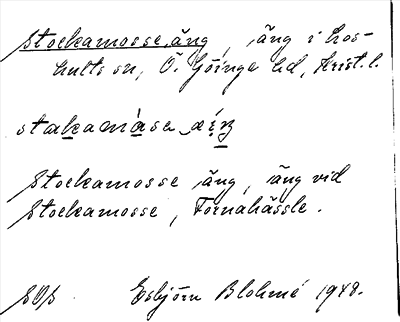 Stockamosse äng, äng i Los-
hults sn, Ö. Göinge hd, Krist. l.
Stockamosse äng, äng vid
Stockamosse, Fornahässle.
SOS Esbjörn Blohmé 1948.